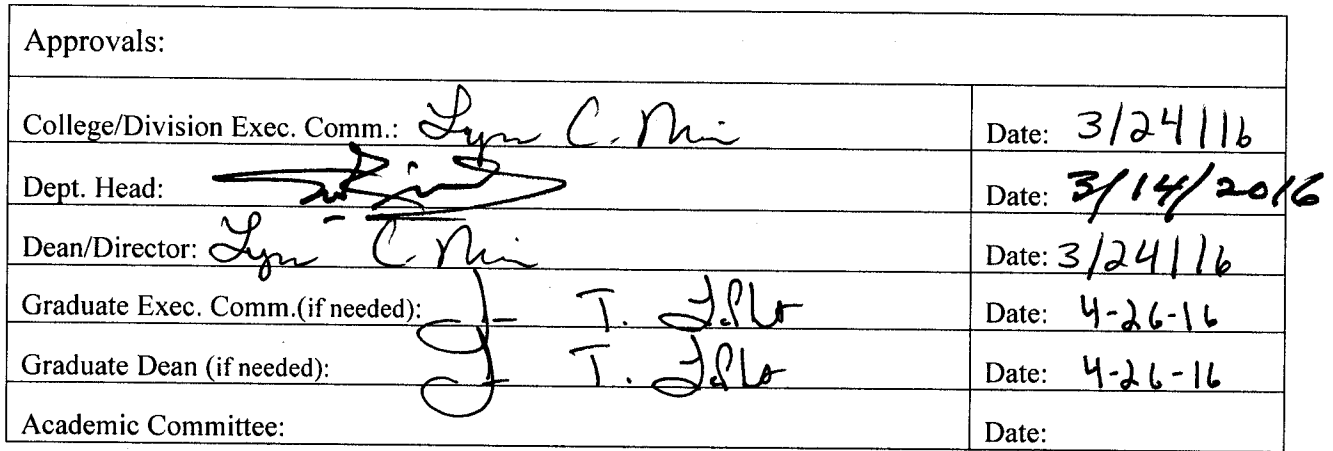 Approvals:
College/Division Exec. Comm.: Lyn C. Date: 3/24/16
Dept. Head: Date: 3/14/2016
Dean/Director: Lyn C. Date: 3/24/16
Graduate Exec. Comm.(if needed): J T. Date: 4-26-16
Graduate Dean (if needed): J T. Date: 4-26-16
Academic Committee: Date: